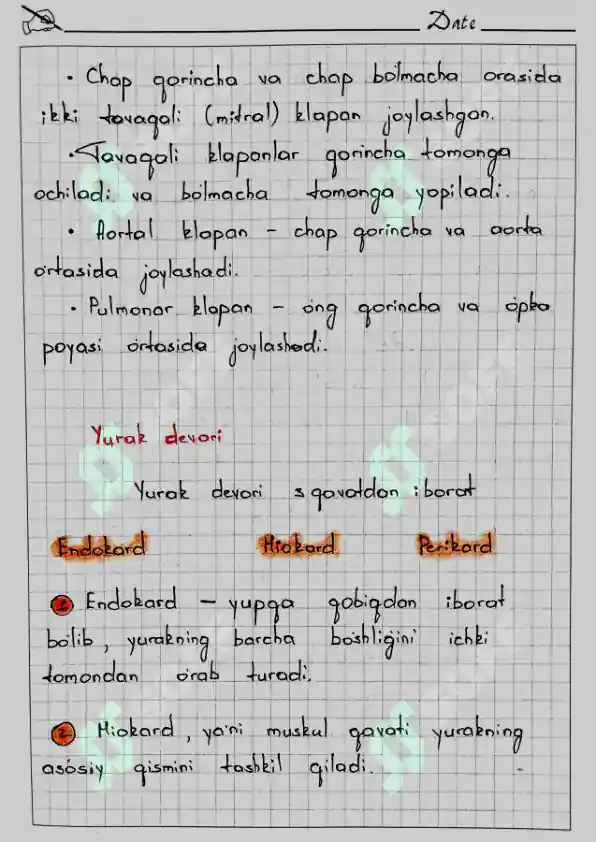 Date
• Chap qorincha va chap bo'lmacha orasida
ikki tavaqali (mitral) klapan joylashgan.
• Tavaqali klapanlar qorincha tomonga
ochiladi va bo'lmacha tomonga yopiladi.
• Aortal klapan – chap qorincha va aorta
o'rtasida joylashadi.
• Pulmonar klapan – o'ng qorincha va o'pka
poyasi o'rtasida joylashadi.
Yurak devori
Yurak devori 3 qavatdan iborat
Endokard Miokard Perikard
1 Endokard – yupqa qobiqdan iborat
bo'lib, yurakning barcha bo'shlig'ini ichki
tomondan o'rab turadi.
2 Miokard, ya'ni muskul qavati yurakning
asosiy qismini tashkil qiladi.